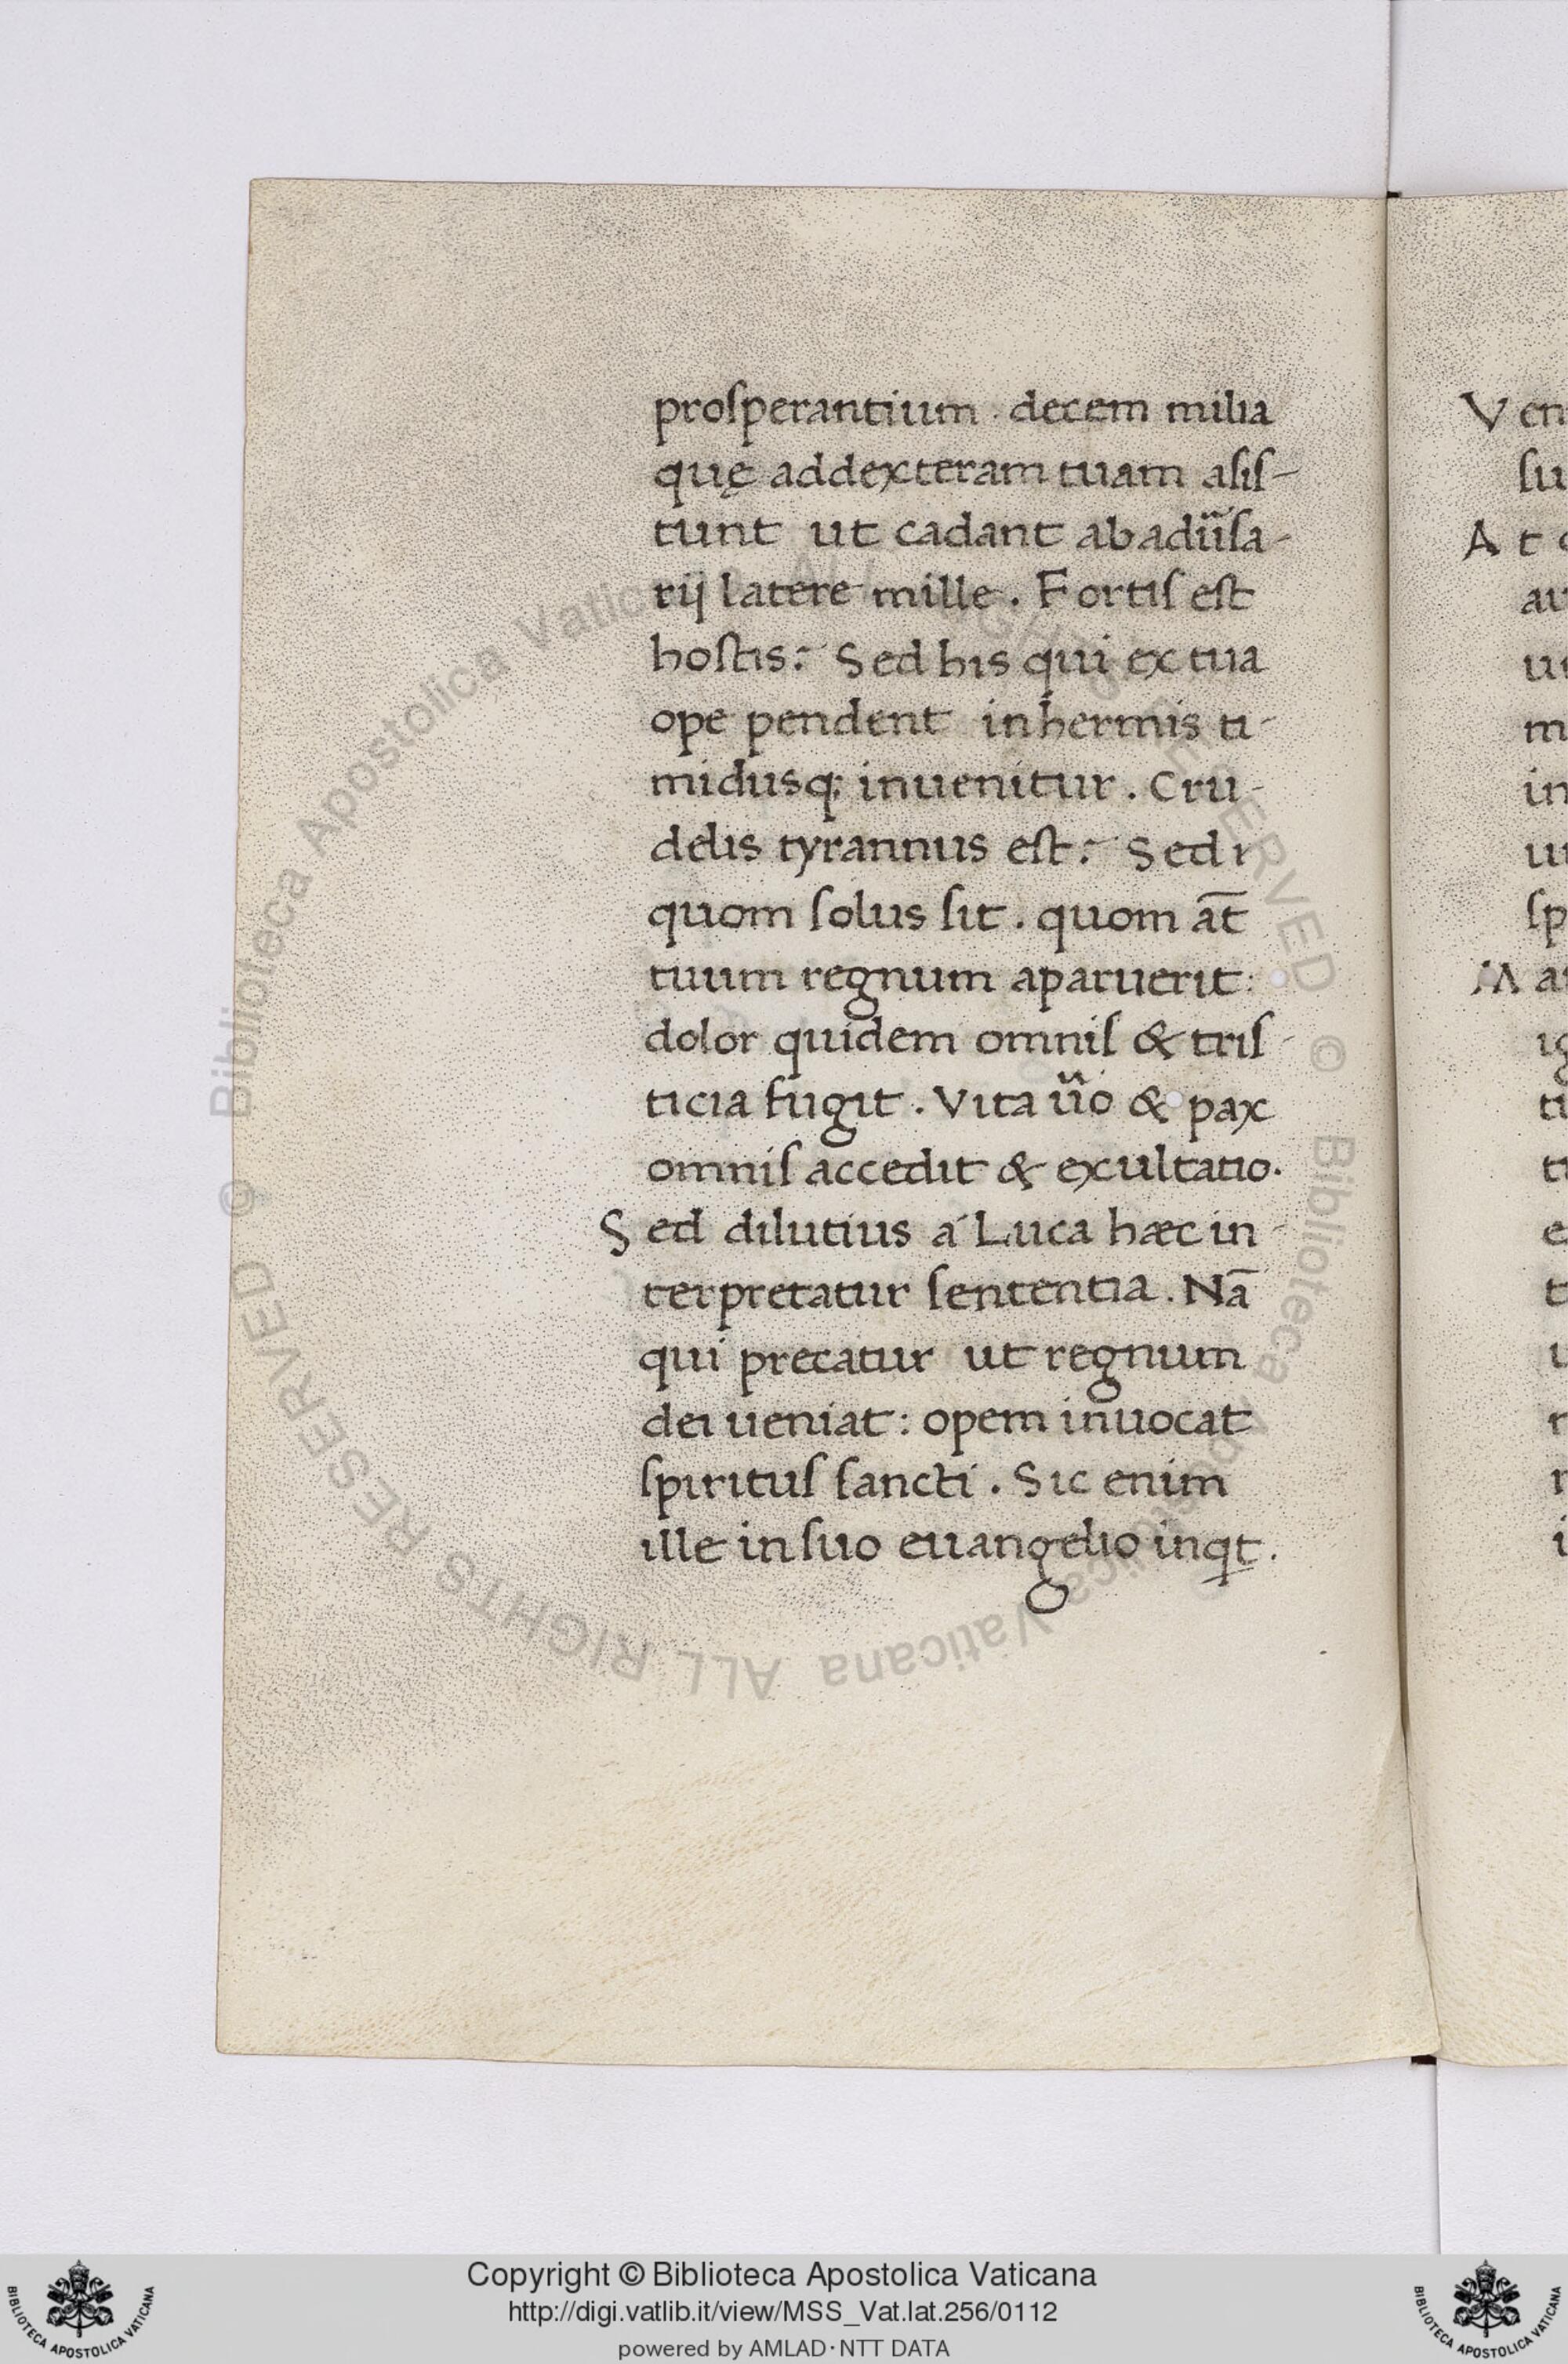 proſperantium . decem milia
quę addexteram tuam aſiſ-
tunt ut cadant ab adũſa-
rij latere mille . Fortiſ eſt
hoſtis: Sed his qui ex tua
ope pendent inhermis ti-
midusq; inuenitur . Cru-
delis tyrannus eſt: Sed
quom ſolus ſit . quom at̄
tuum regnum aparuerit:
dolor quidem omniſ & triſ-
ticia fugit . Vita ũo & pax
omniſ accedit & excultatio.
Sed dilutius a Luca hæc in-
terpretatur ſententia . Nā
qui precatur ut regnum
dei ueniat: opem inuocat
ſpirituſ ſancti . Sic enim
ille in ſuo euangelio inqt .
V en
ſu
A t
au
m
in
ſp
M a
Copyright © Biblioteca Apostolica Vaticana
http://digi.vatlib.it/view/MSS_Vat.lat.256/0112
powered by AMLAD·NTT DATA
BIBLIOTECA APOSTOLICA VATICANA
BIBLIOTECA APOSTOLICA VATICANA
© Biblioteca Apostolica Vaticana ALL RIGHTS RESERVED
© Biblioteca Apostolica Vaticana ALL RIGHTS RESERVED